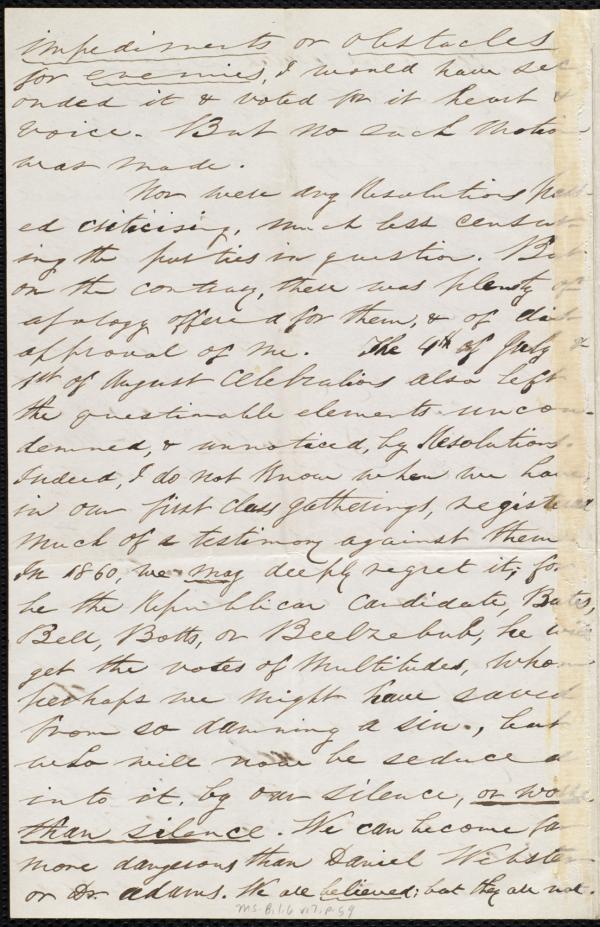 impediments or obstacles
for enemies, I would have sec-
onded it & voted for it heart &
voice. But no such motion
was made.
Nor were any Resolutions pass-
ed criticising, much less censur-
ing the parties in question. But
on the contrary, there was plenty of
apology offered for them, & of
approval of me. The 4th of July &
1st of August Celebrations also left
the questionable elements uncon-
demned, & unnoticed, by Resolutions.
Indeed, I do not know when we have,
in our first class gatherings, registered
much of a testimony against them.
In 1860, we may deeply regret it; for
be the Republican Candidate, Bates,
Bell, Botts, or Beelzebub, he will
get the votes of Multitudes, whom
perhaps we might have saved
from so damning a sin, but
who will now be seduced
into it, by our silence, or worse
than silence. We can become far
more dangerous than Daniel Webster
or Dr. Adams. We are believed; but they are not.
MS. B.1.6 v.7, p.59